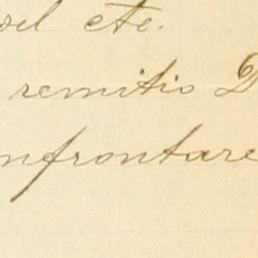 del etc.
remitio D
nfrontare